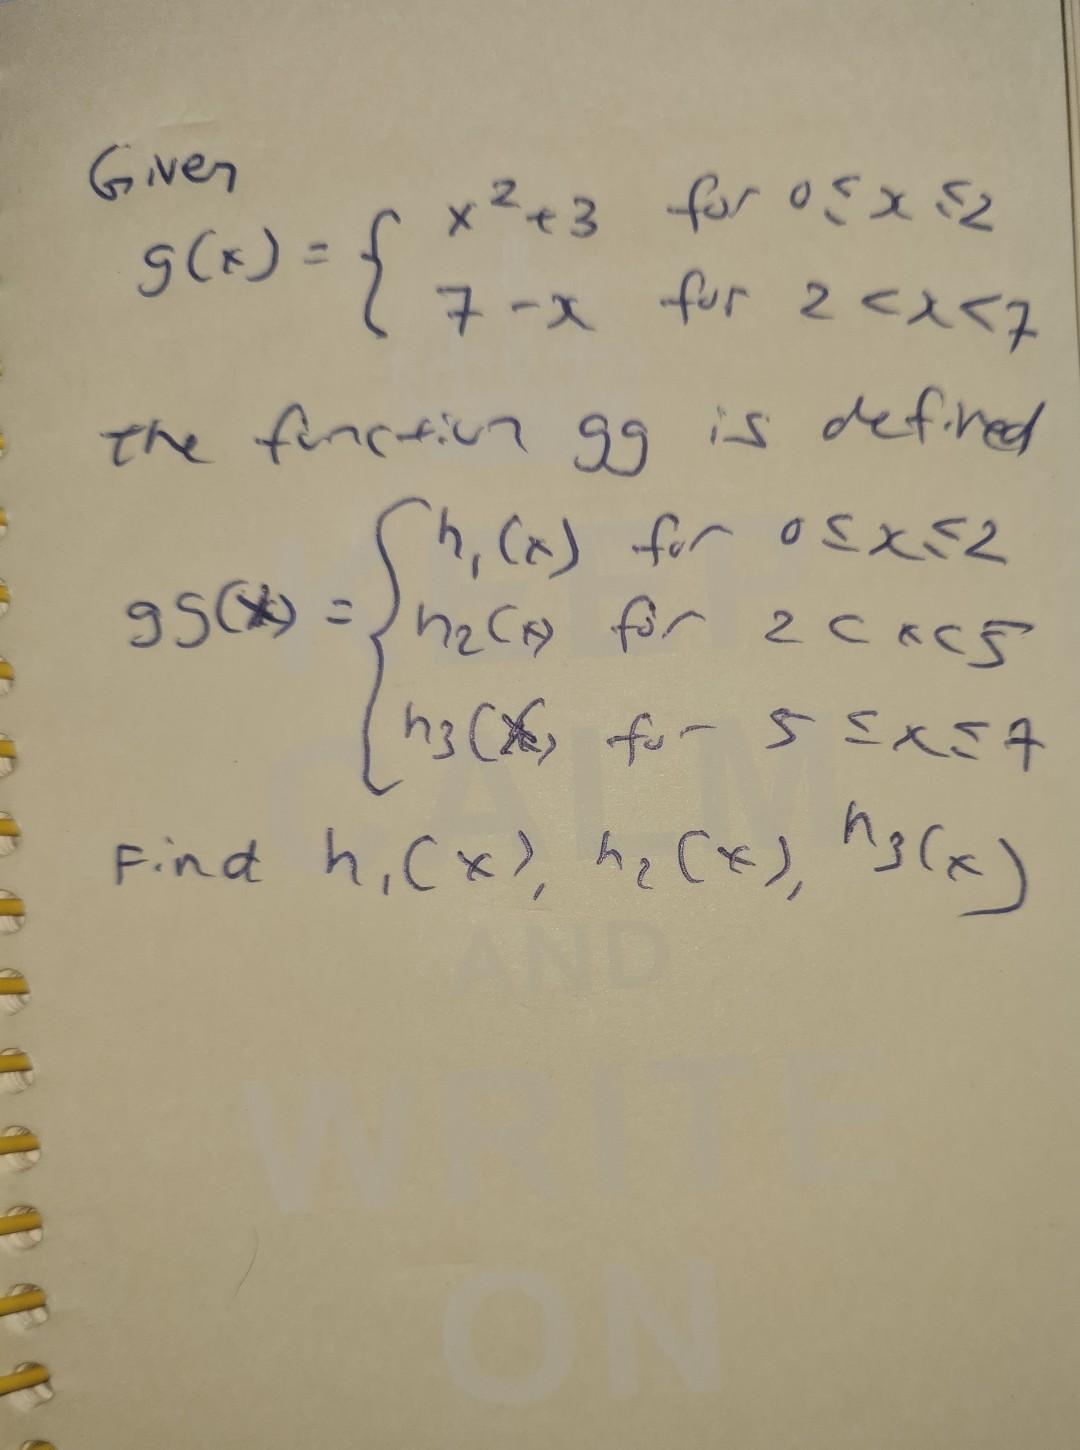 Given
g(x) = { x² + 3 for 0 ≤ x ≤ 2
7 - x for 2 < x < 7
The function gg is defined
gg(x) = { h₁(x) for 0 ≤ x ≤ 2
h₂(x) for 2 < x < 5
h₃(x) for 5 ≤ x ≤ 7
Find h₁(x), h₂(x), h₃(x)
KEEP
CALM
AND
WRITE
ON